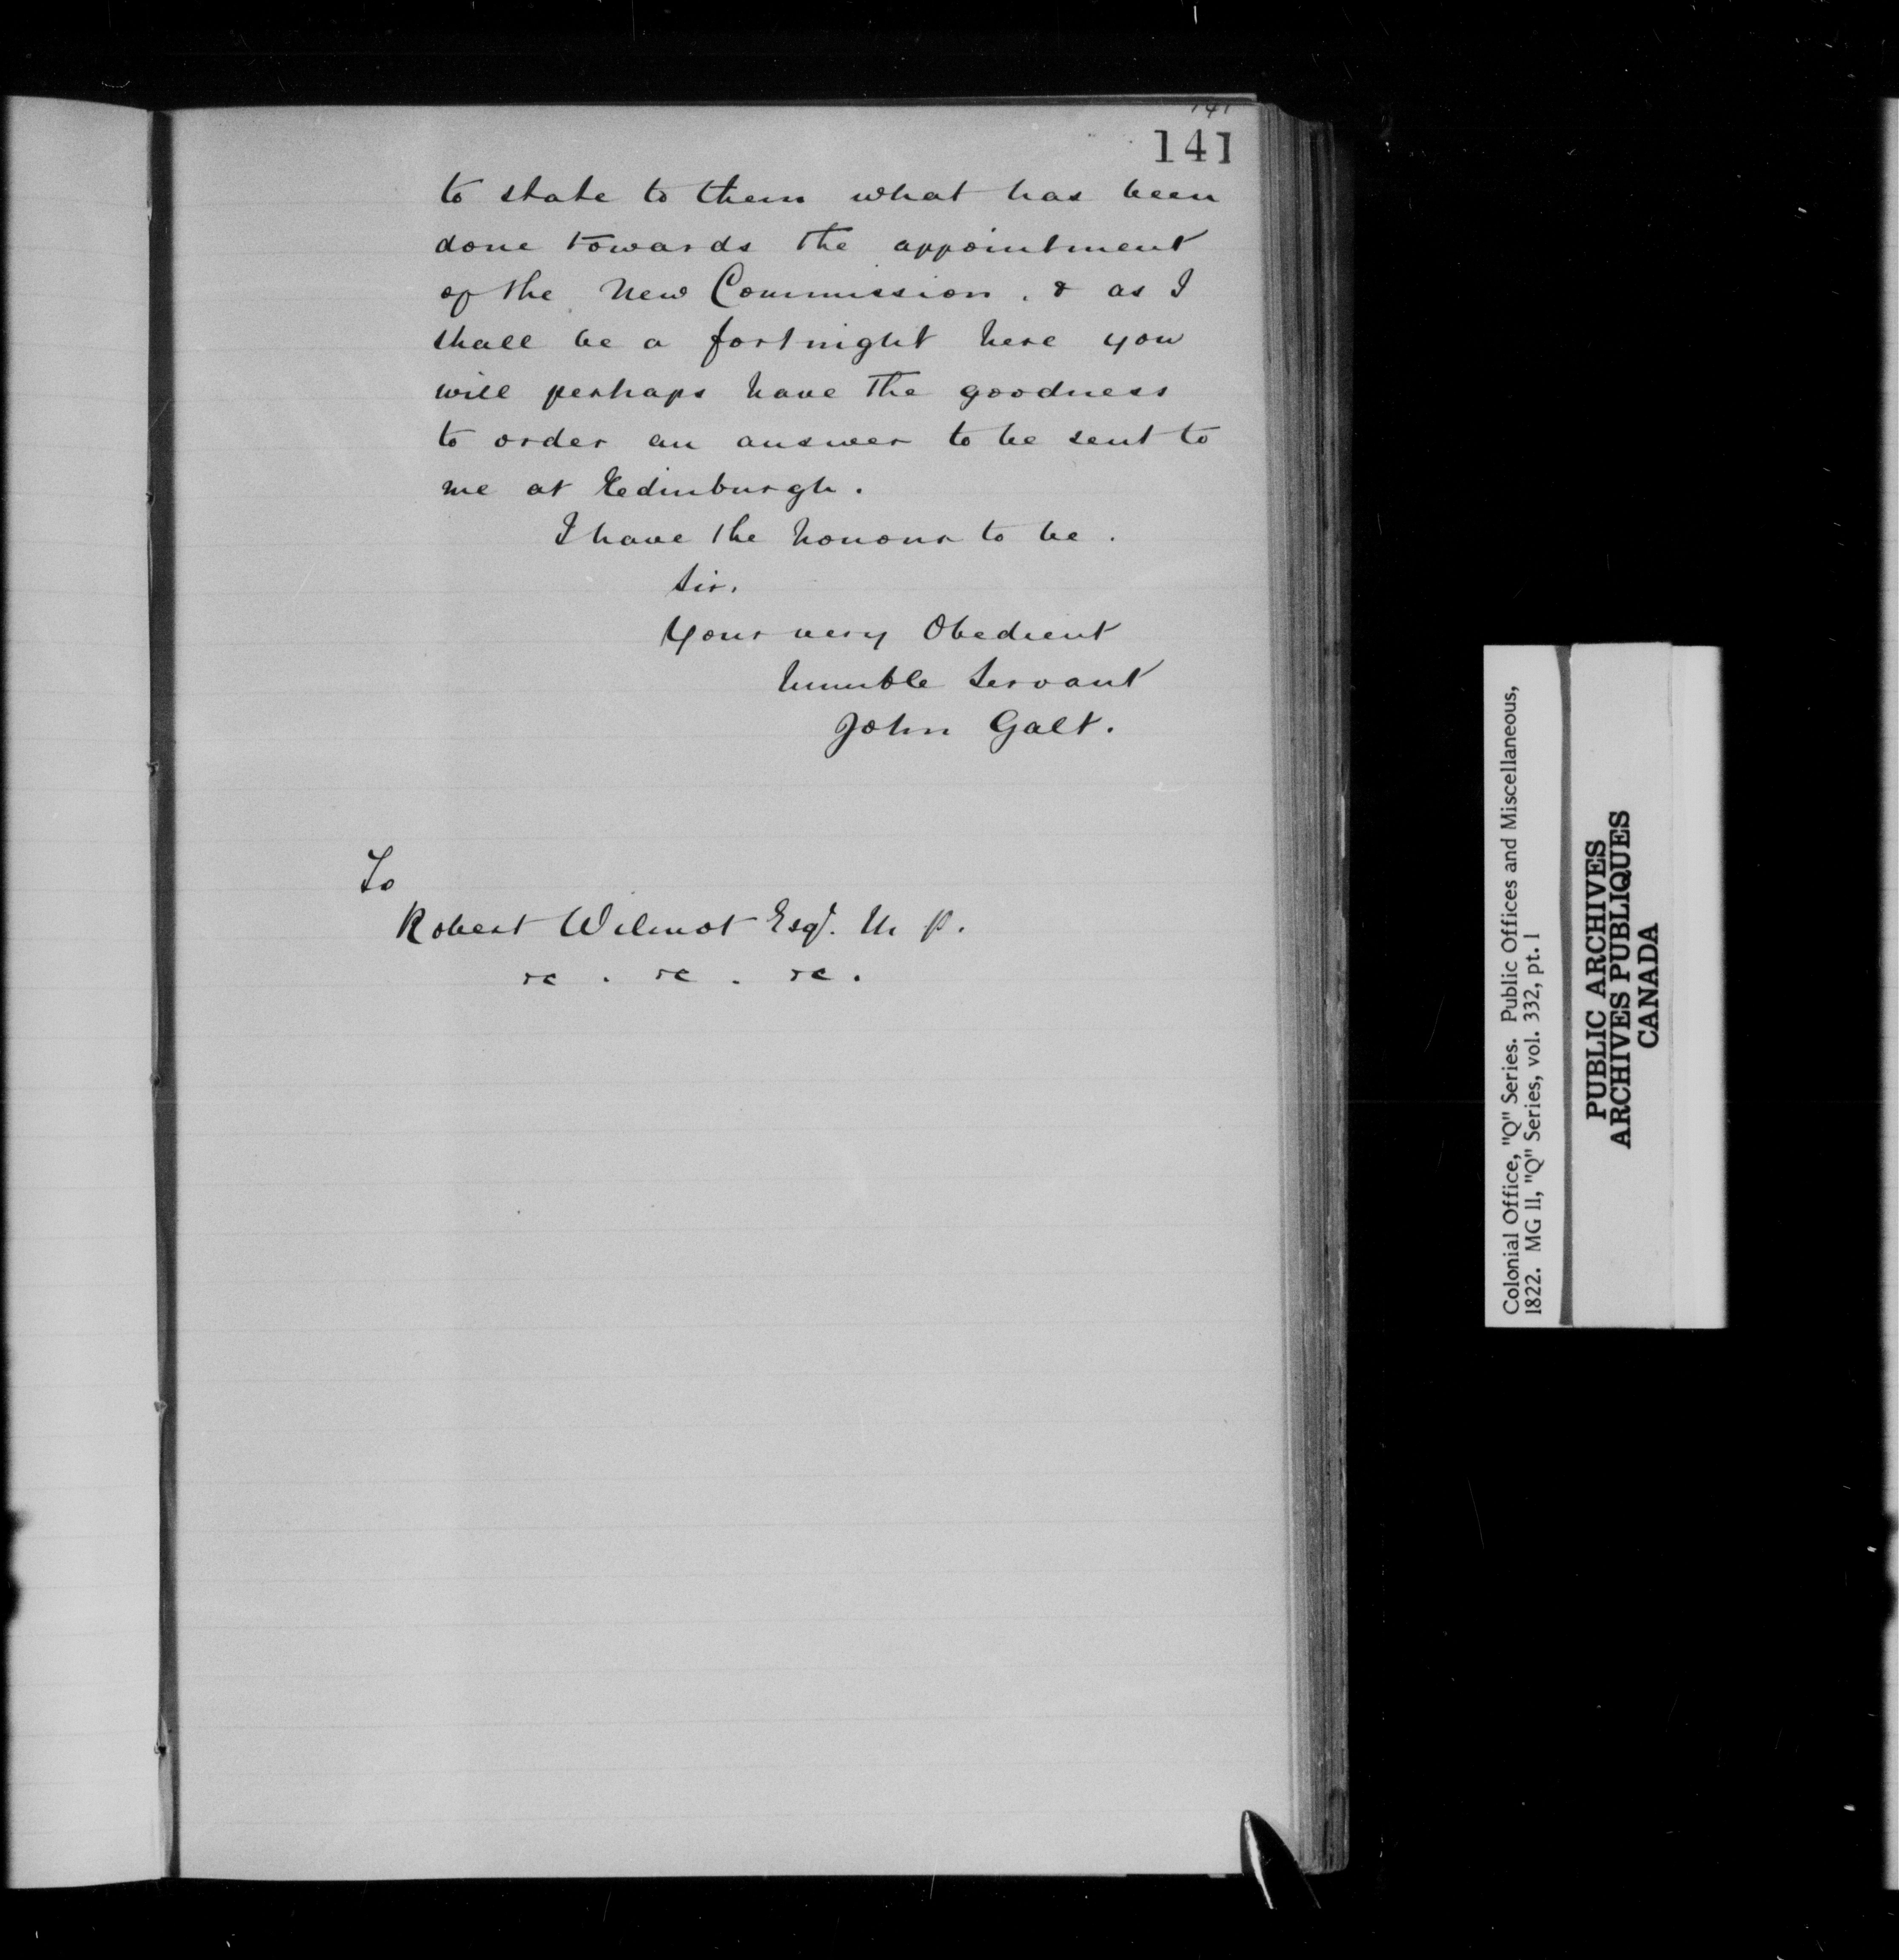 141
141
to state to them what has been
done towards the appointment
of the New Commission. & as I
shall be a fortnight here you
will perhaps have the goodness
to order an answer to be sent to
me at Edinburgh.
I have the honour to be.
Sir.
Your very Obedient
humble Servant
John Galt.
To
Robert Wilmot Esqr. M. P.
&c . &c . &c .
Colonial Office, "Q" Series. Public Offices and Miscellaneous,
1822. MG 11, "Q" Series, vol. 332, pt. 1
PUBLIC ARCHIVES
ARCHIVES PUBLIQUES
CANADA